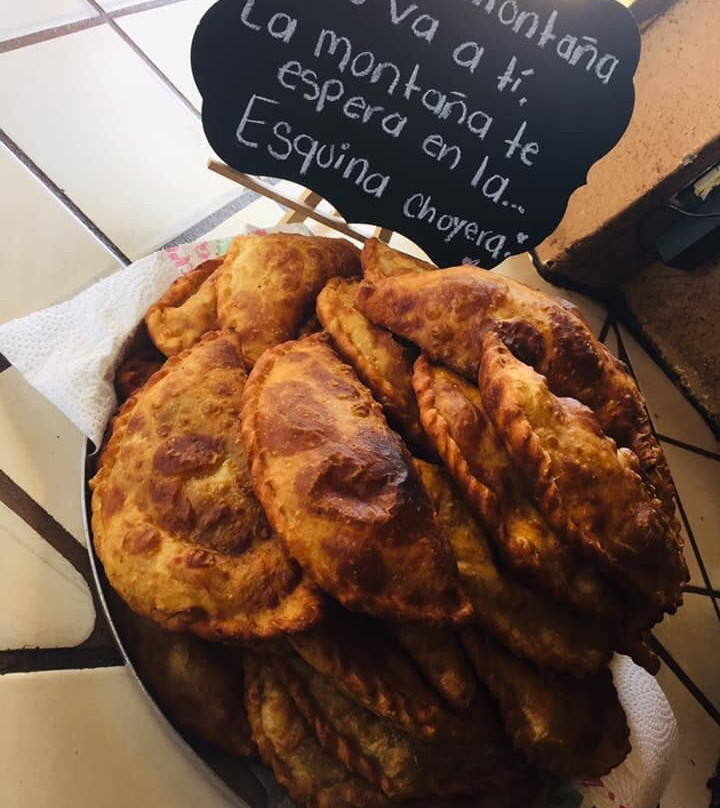 va a tí.
montaña
La montaña te
espera en la...
Esquina choyera.